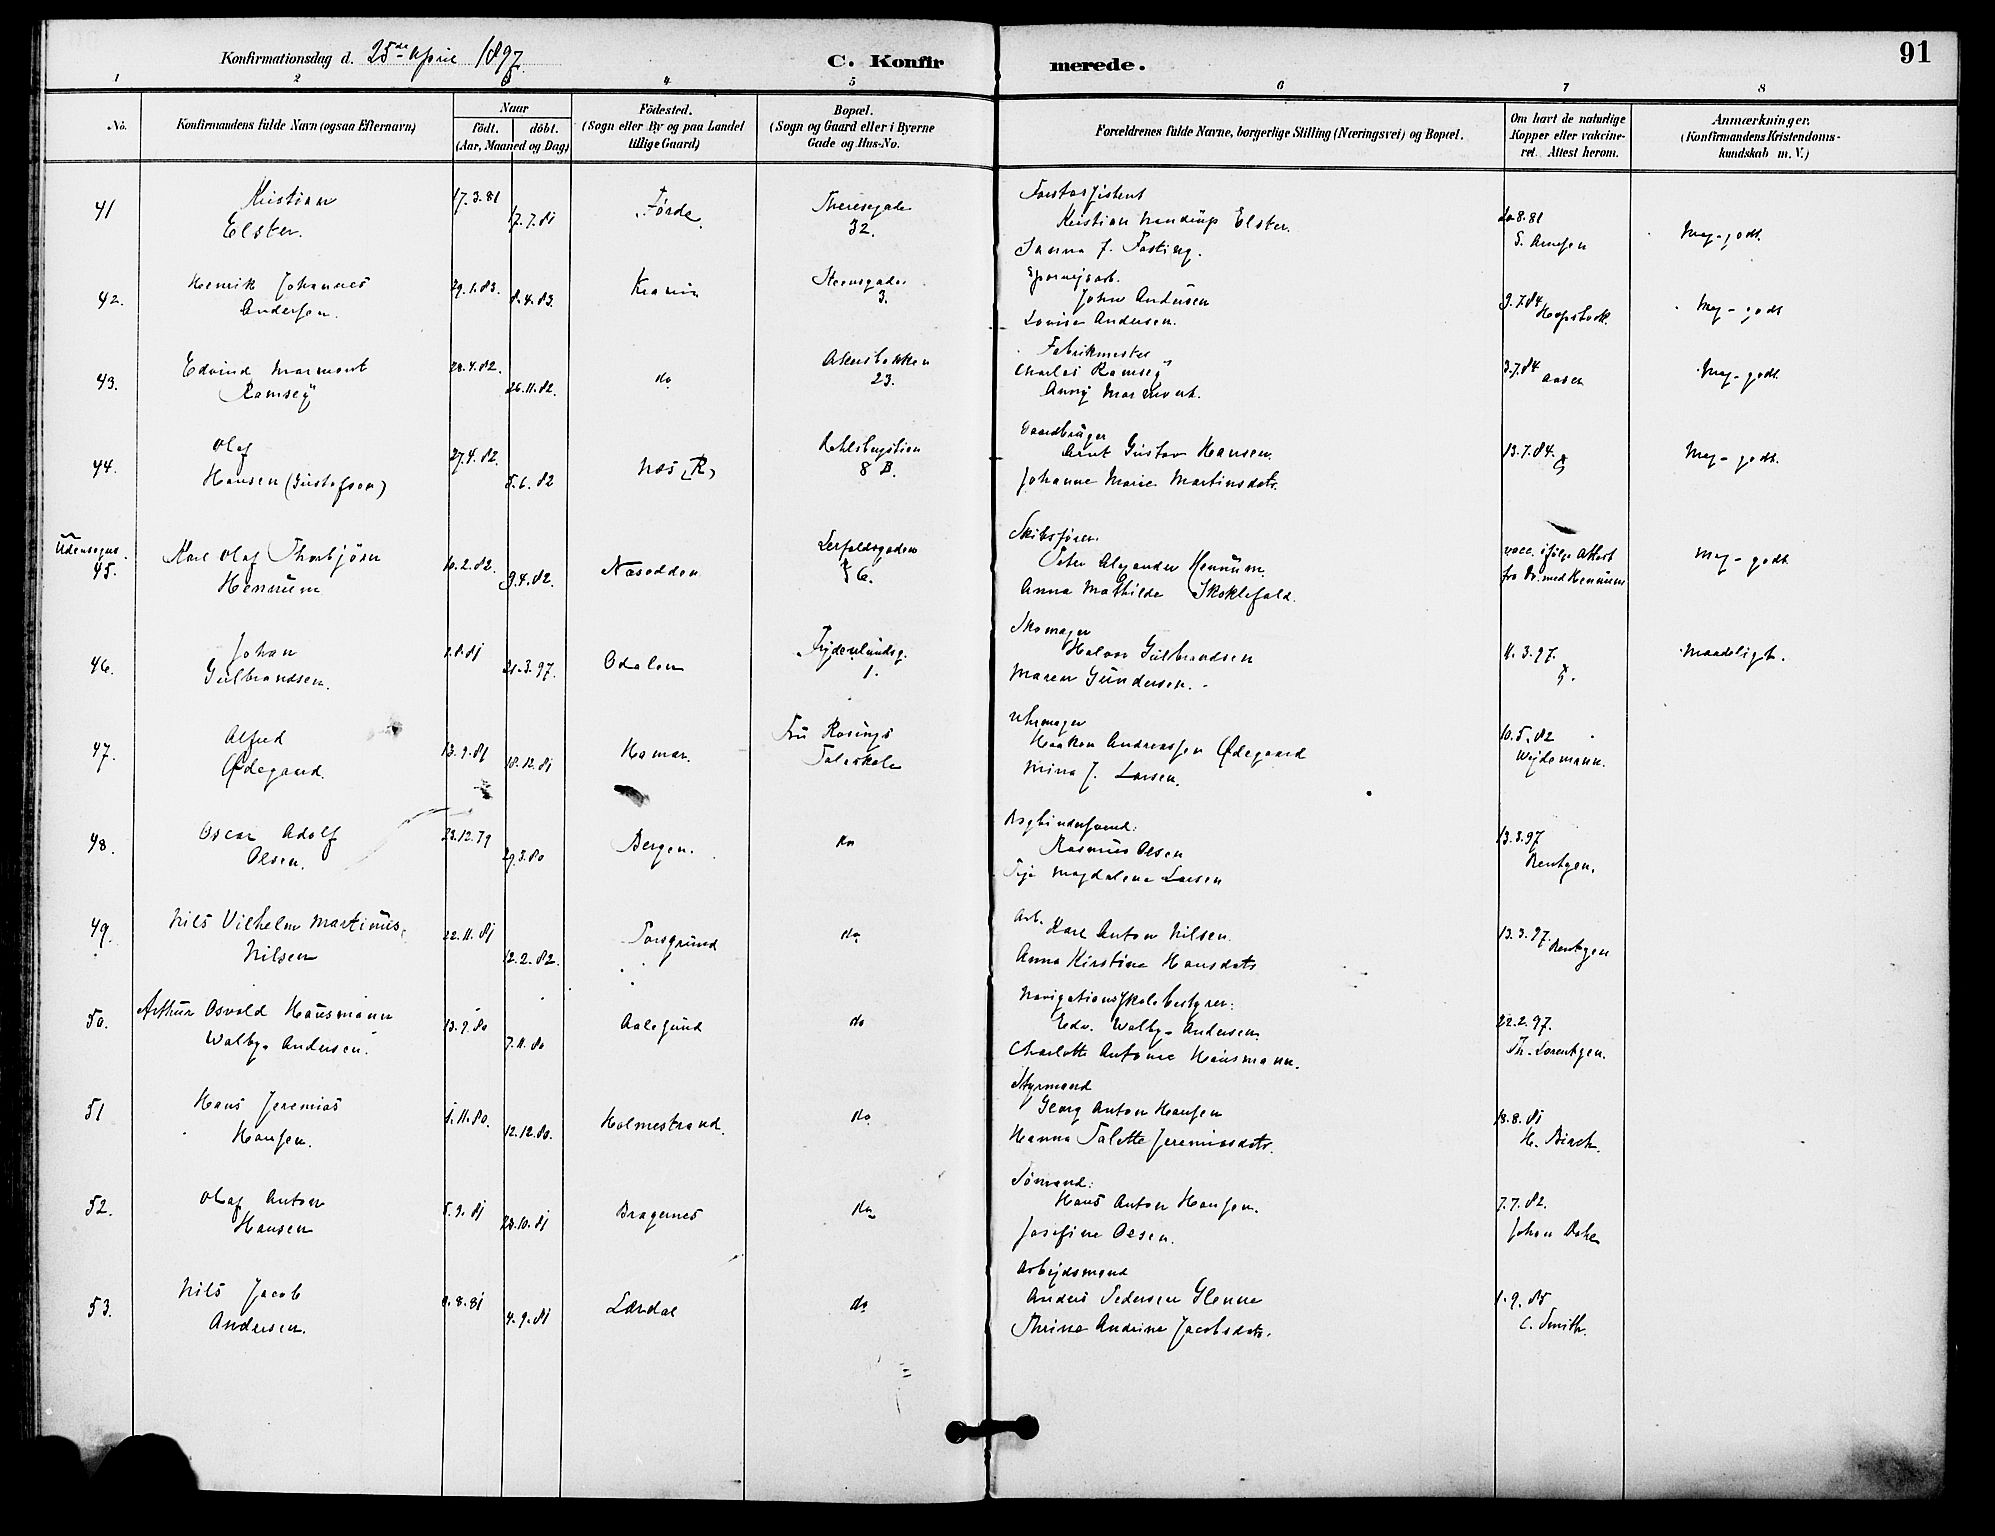 Konfirmationsdag d. 25de April 1897.
C. Konfirmerede.
91
1 2 3 4 5 6 7 8
No.
Konfirmandens fulde Navn (ogsaa Efternavn)
Naar
födt. döbt.
(Aar, Maaned og Dag)
Födested.
(Sogn eller By og paa Landet
tillige Gaard)
Bopæl.
(Sogn og Gaard eller i Byerne
Gade og Hus-No.
Forældrenes fulde Navne, borgerlige Stilling (Næringsvei) og Bopæl.
Om havt de naturlige
Kopper eller vakcine-
ret. Attest herom.
Anmærkninger.
(Konfirmandens Kristendoms-
kundskab m. V.)
41
Kristian
Elster.
17.3.81
17.7.81
Förde
Theresegade
32.
Forstassistent
Kristian Mandrup Elster.
Sanna F. Fasting.
20.8.81
S. Arnesen
Meg-godt.
42.
Henrik Johannes
Andersen.
29.1.83.
8.4.83.
Krania
Steensgade
3.
Sporvejsarb.
John Andersen
Lovise Andersen.
9.7.84
Hopstock.
Meg-godt
43.
Edvind Marmont
Ramsey
28.4.82.
26.11.82.
do
Akersbakken
23.
Fabrikmester
Charles Ramsey
Anny Marmont.
3.7.84
Aasen
Meg-godt.
44.
Olaf
Hansen (Gustafson)
27.4.82.
5.6.82
Næs (R)
8 B.
Gaardbruger
Arnt Gustav Hansen.
Johanne Marie Martinsdatr.
13.7.84.
Meg-godt.
Udensogns.
45.
Karl Olaf Thorbjörn
Hennum
10.2.82.
9.4.82.
Næsodden
6.
Skibsförer.
Peter Alexander Hennum.
Anna Mathilde Skoklefald.
vacc. ifölge Attest
fra Dr. med Hennum
Meg-godt
46.
Johan
Gulbrandsen.
1.8.81
21.3.97.
Odalen
Frydenlundsg.
1.
Skomager
Halvor Gulbrandsen
Maren Gundersen.
11.3.97.
Maadeligt.
47.
Alfred
Ödegaard.
13.9.81
18.12.81
Hamar.
Fru Rosings
Taleskole
Uhrmager
Haakon Andreassen Ödegaard
Mina J. Larsen.
10.5.82
Wejdemann.
48.
Oscar Adolf
Olsen.
23.12.79
29.3.80
Bergen.
do
Bogbindersvend:
Rasmus Olsen
Magdalene Larsen
13.3.97
Bentzen.
49.
Nils Vilhelm Martinus
Nilsen
22.11.81
12.2.82.
Porsgrund
do
Arb.
Karl Anton Nilsen.
Anna Kirstine Hansdatr
13.3.97.
Bentzen
50.
Arthur Osvald Hausmann
Walby-Andersen.
13.9.80
7.11.80
Aalesund
do
Navigationsskolebestyrer:
Edv. Walby-Andersen.
Charlotte Antonie Hausmann.
22.2.97.
Th. Lorentzen.
51
Hans Jeremias
Hansen.
1.11.80.
12.12.80.
Holmestrand.
do
Styrmand
Georg Anton Hansen
Hanna Talette Jeremiasdatr.
18.8.81
H. Birch.
52.
Olaf Anton
Hansen
5.9.81
23.10.81
Bragernes
do
Sömand:
Hans Anton Hansen.
Josefine Olsen.
7.7.82.
Johan
53.
Nils Jacob
Andersen.
2.8.81
4.9.81
Lærdal
do
Arbejdsmand
Anders Pedersen Glenne
Thrine Andrine Jacobsdatr.
1.9.85
C. Smith.